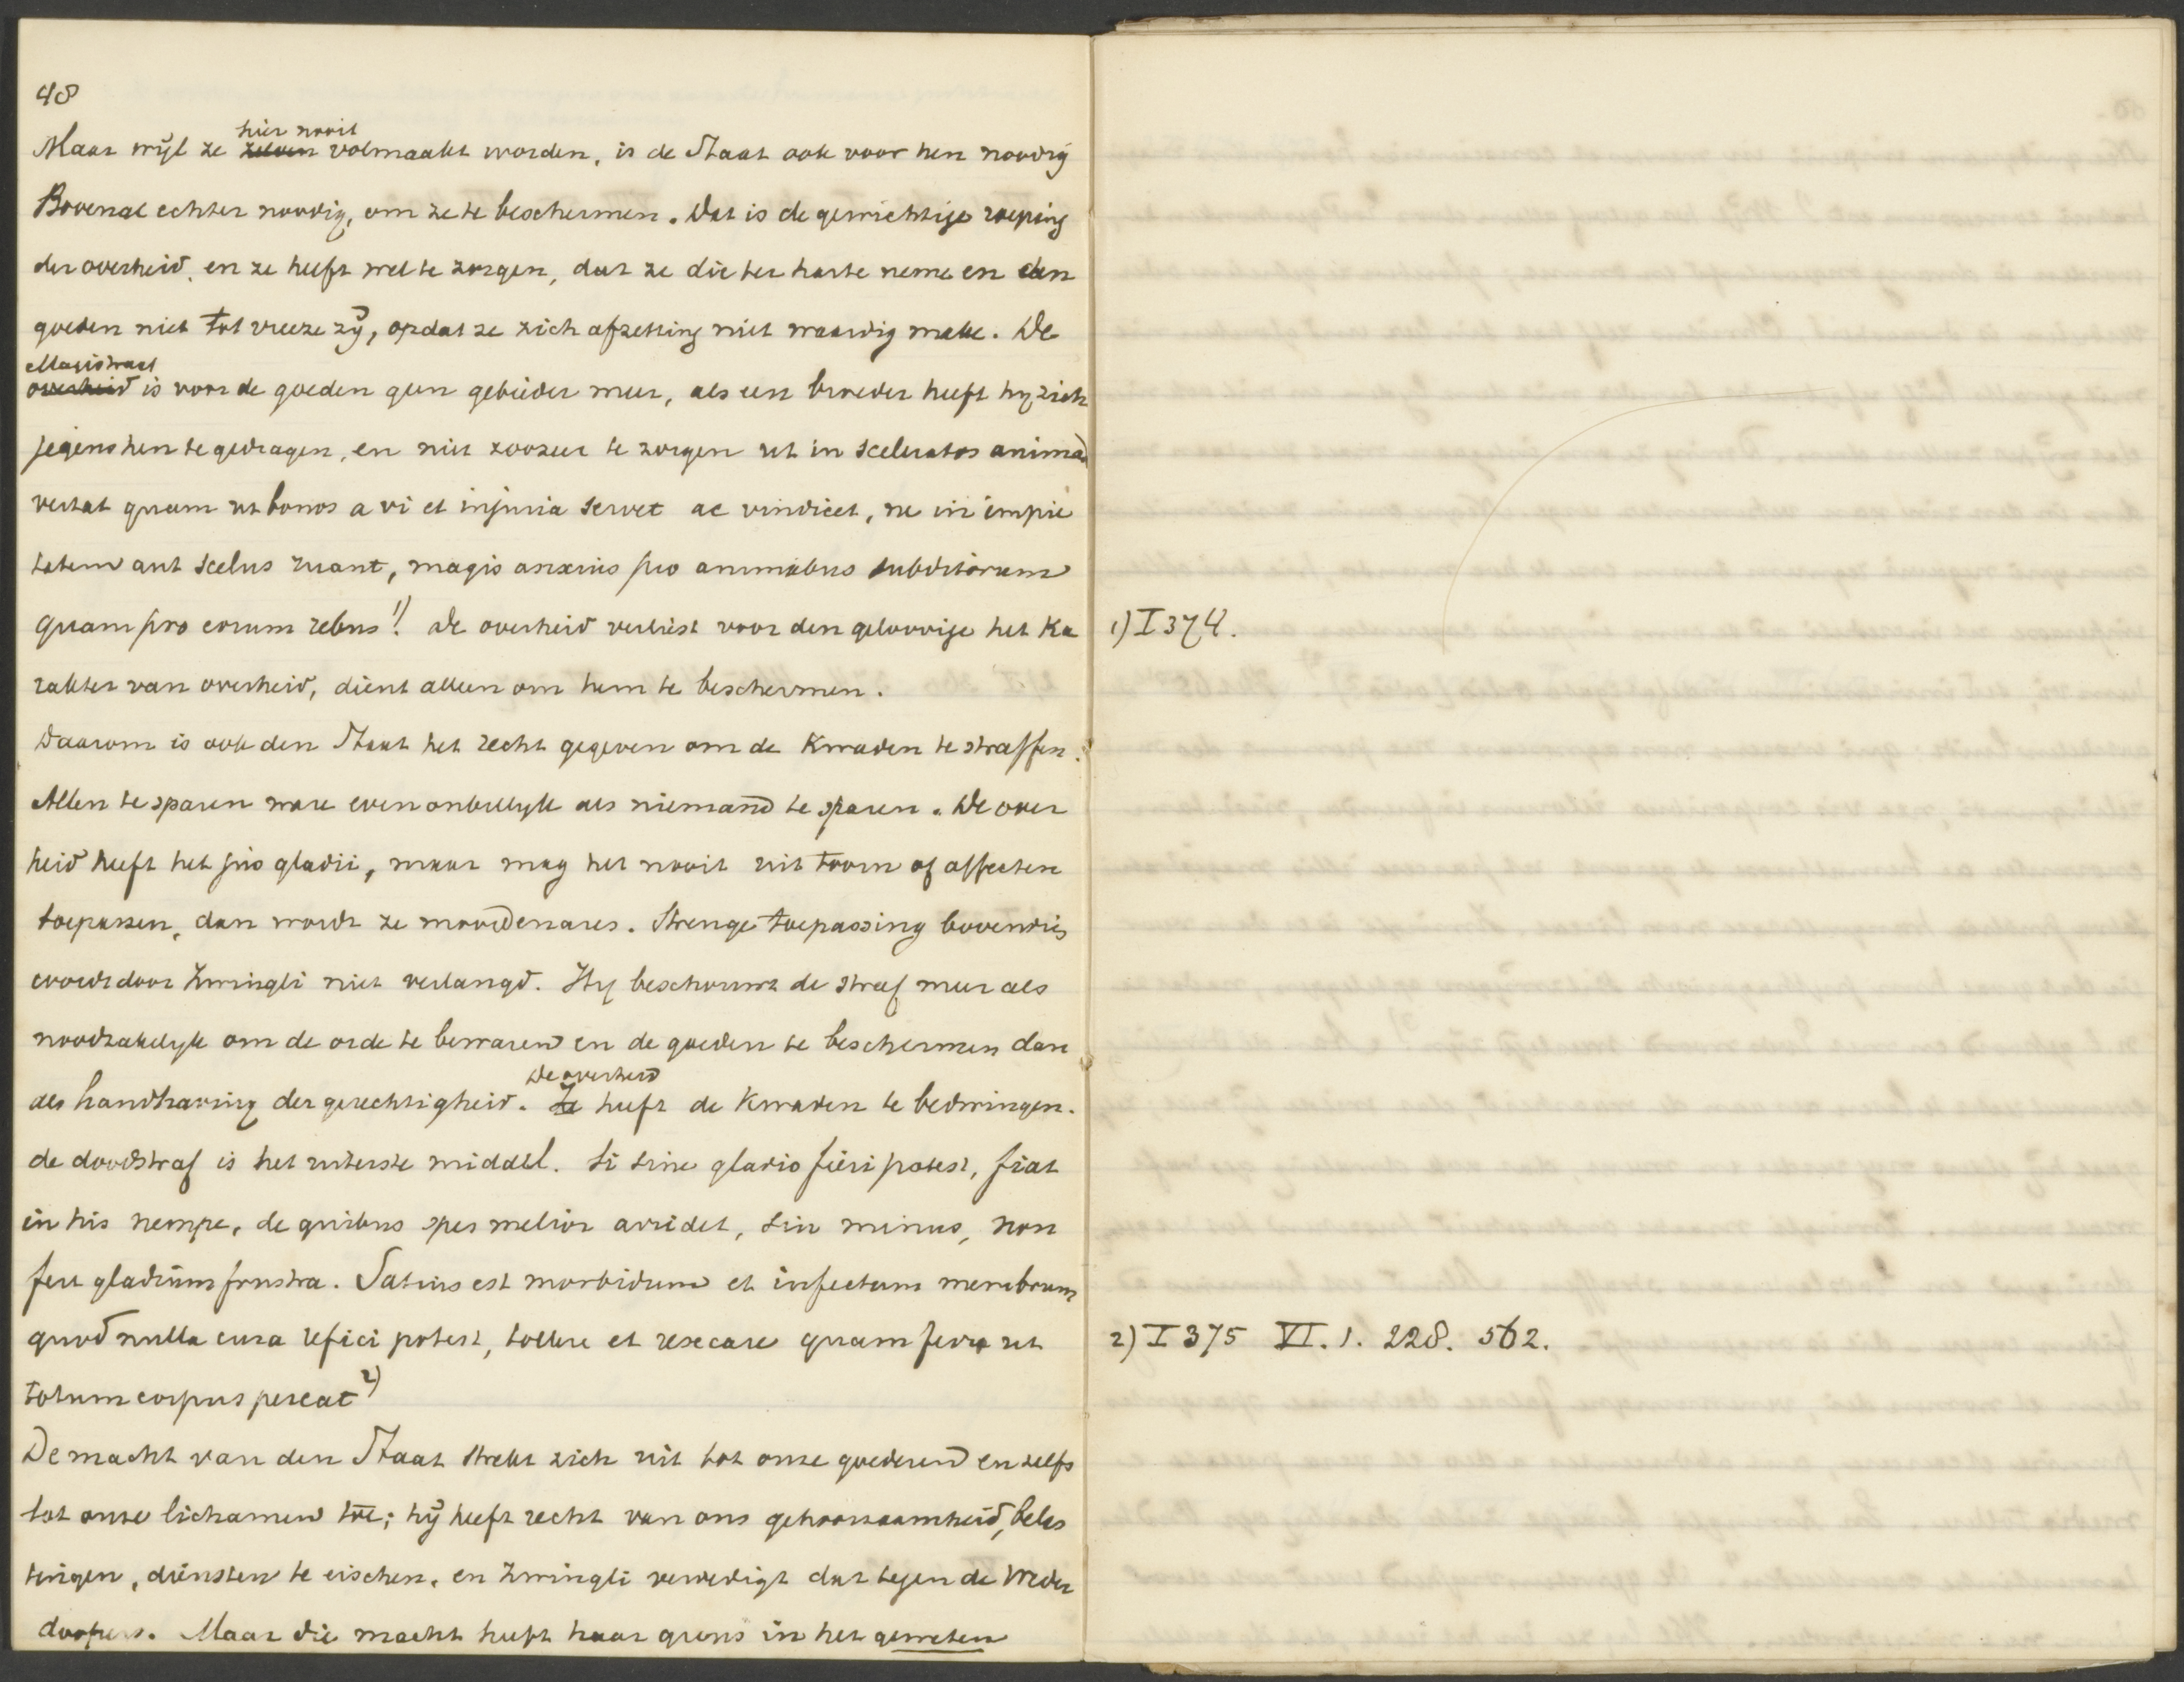 48
hier nooit
Maar wijl ze zelven volmaakt worden, is de Staat ook voor hen noodig
Bovenal echter noodig, om ze te beschermen. Dat is de gewichtige roeping
der overheid, en ze heeft wel te zorgen, dat ze die ter harte neme en den
goeden niet tot vreeze zij, opdat ze zich afzetting niet waardig make. De
Magistraat
overheid is voor de goeden geen gebieder meer, als een broeder heeft hy zich
jegens hen te gedragen, en niet zoozeer te zorgen ut in sceleratos animad
vertat quam ut bonos a vi et injuria servet ac vindicet, ne in impie
tatem aut scelus ruant, magis anxius pro animabus subditorum
quam pro eorum rebus! 1) De overheid verliest voor den geloovige het Ka
rakter van overheid, dient alleen om hem te beschermen.
Daarom is ook den Staat het recht gegeven om de Kwaden te straffen.
Allen te sparen ware even onbillyk als niemand te sparen. De over
heid heeft het jus gladii, maar mag het nooit uit toorn of affecten
toepassen, dan wordt ze moordenares. Strenge toepassing bovendien
wordt door Zwingli niet verlangd. Hy beschouwt de straf meer als
noodzakelyk om de orde te bewaren en de goeden te beschermen dan
De overheid
als handhaving der gerechtigheid. Ze heeft de Kwaden te bedwingen.
de doodstraf is het uiterste middel. Si sine gladio fieri potest, fiat
in his nempe, de quibus spes melior arridet, sin minus, non
fert gladium frustra. Satius est morbidum et infectum membrum
quod nulla cura refici potest, tollere et resecare quam ferre ut
totum corpus pereat 2)
De macht van den Staat strekt zich uit tot onze goederen en zelfs
tot onze lichamen toe; hij heeft recht van ons gehoorzaamheid, belas
tingen, diensten te eischen, en Zwingli verdedigt dat tegen de Weder
doopers. Maar die macht heeft haar grens in het geweten
1) I 374.
2) I 375 VI. 1. 228. 562.